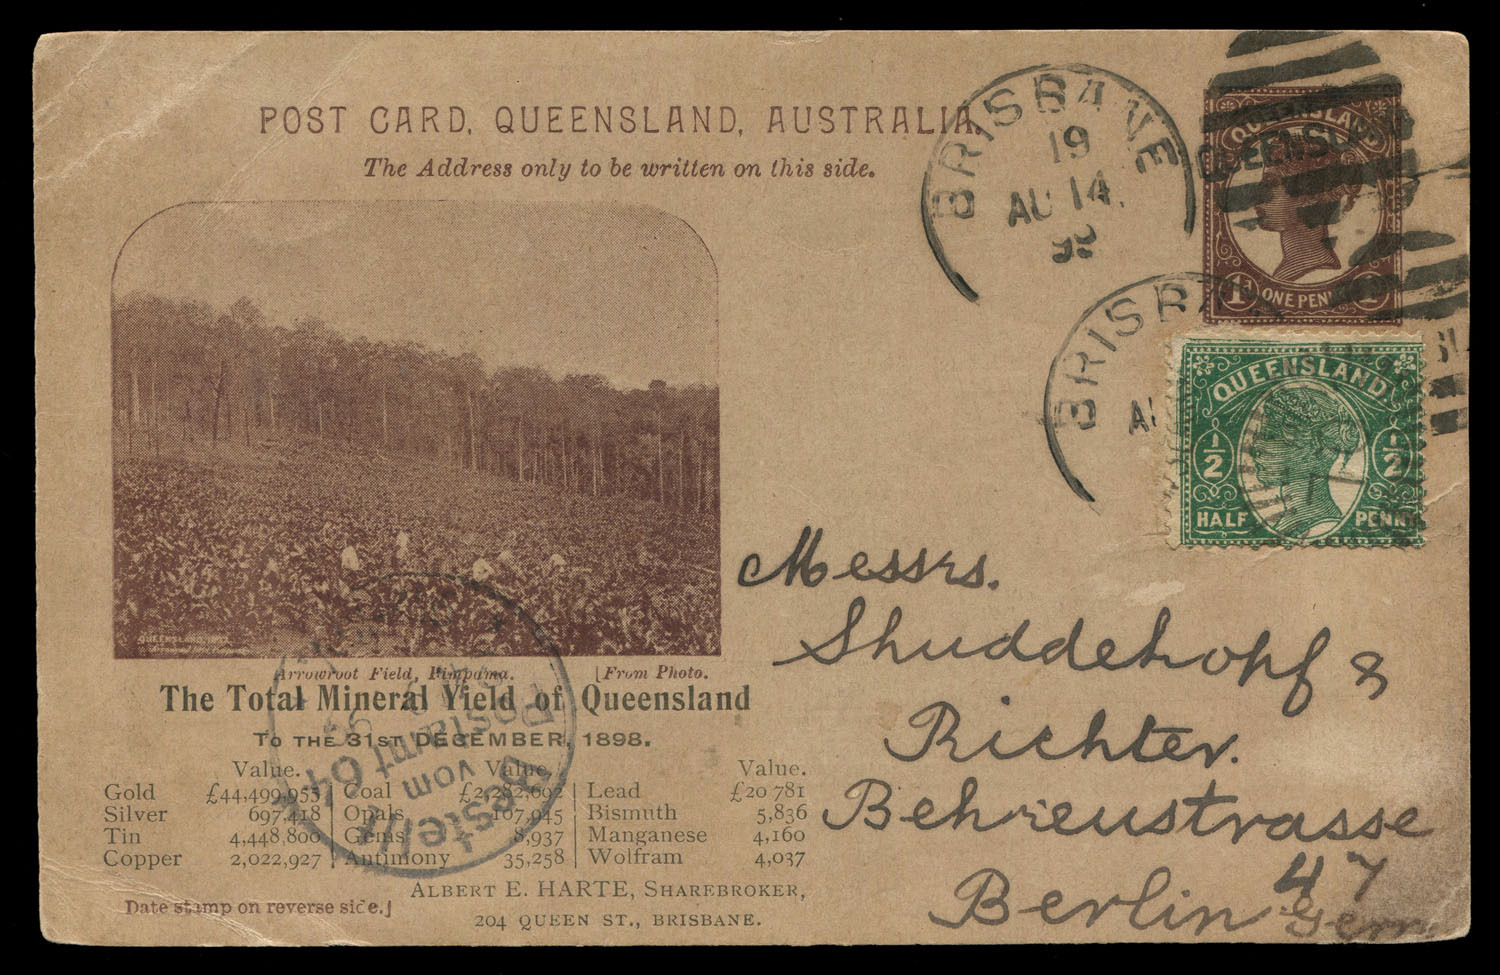 POST CARD, QUEENSLAND, AUSTRALIA.
The Address only to be written on this side.
BRISBANE
19
AU 14
99
QUEENSLAND
QUEENSL
1d ONE PENNY 1
BRISBA
AU
QUEENSLAND
1/2 1/2
HALF PENNY
Arrowroot Field, Pimpama. [From Photo.
The Total Mineral Yield of Queensland
TO THE 31ST DECEMBER, 1898.
Value. Value. Value.
Gold £44,499,955 Coal £2,282,692 Lead £20 781
Silver 697,418 Opals 107,945 Bismuth 5,836
Tin 4,448,800 Gems 8,937 Manganese 4,160
Copper 2,022,927 Antimony 35,258 Wolfram 4,037
ALBERT E. HARTE, SHAREBROKER,
204 QUEEN ST., BRISBANE.
Date stamp on reverse side.]
Bestellt
vom
Postamt 64
Messrs.
Shuddehopf &
Richter.
Behrenstrasse
47
Berlin
Germ